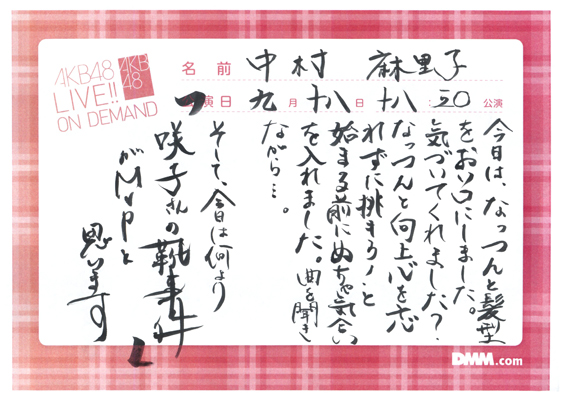 AKB48
LIVE!!
ON DEMAND
AKB
48
名前 中村 麻里子
出演日 九月十八日 十八:30 公演
今日は、なっつんと髪型
をおソロにしました。
気づいてくれました?
なっつんと向上心を忘
れずに挑もう!と
始まる前にめちゃ気合い
を入れました。曲を聞き
ながら…。
そして、今日は何より
「咲子さんの靴事件」
がMVPと
思います
DMM.com